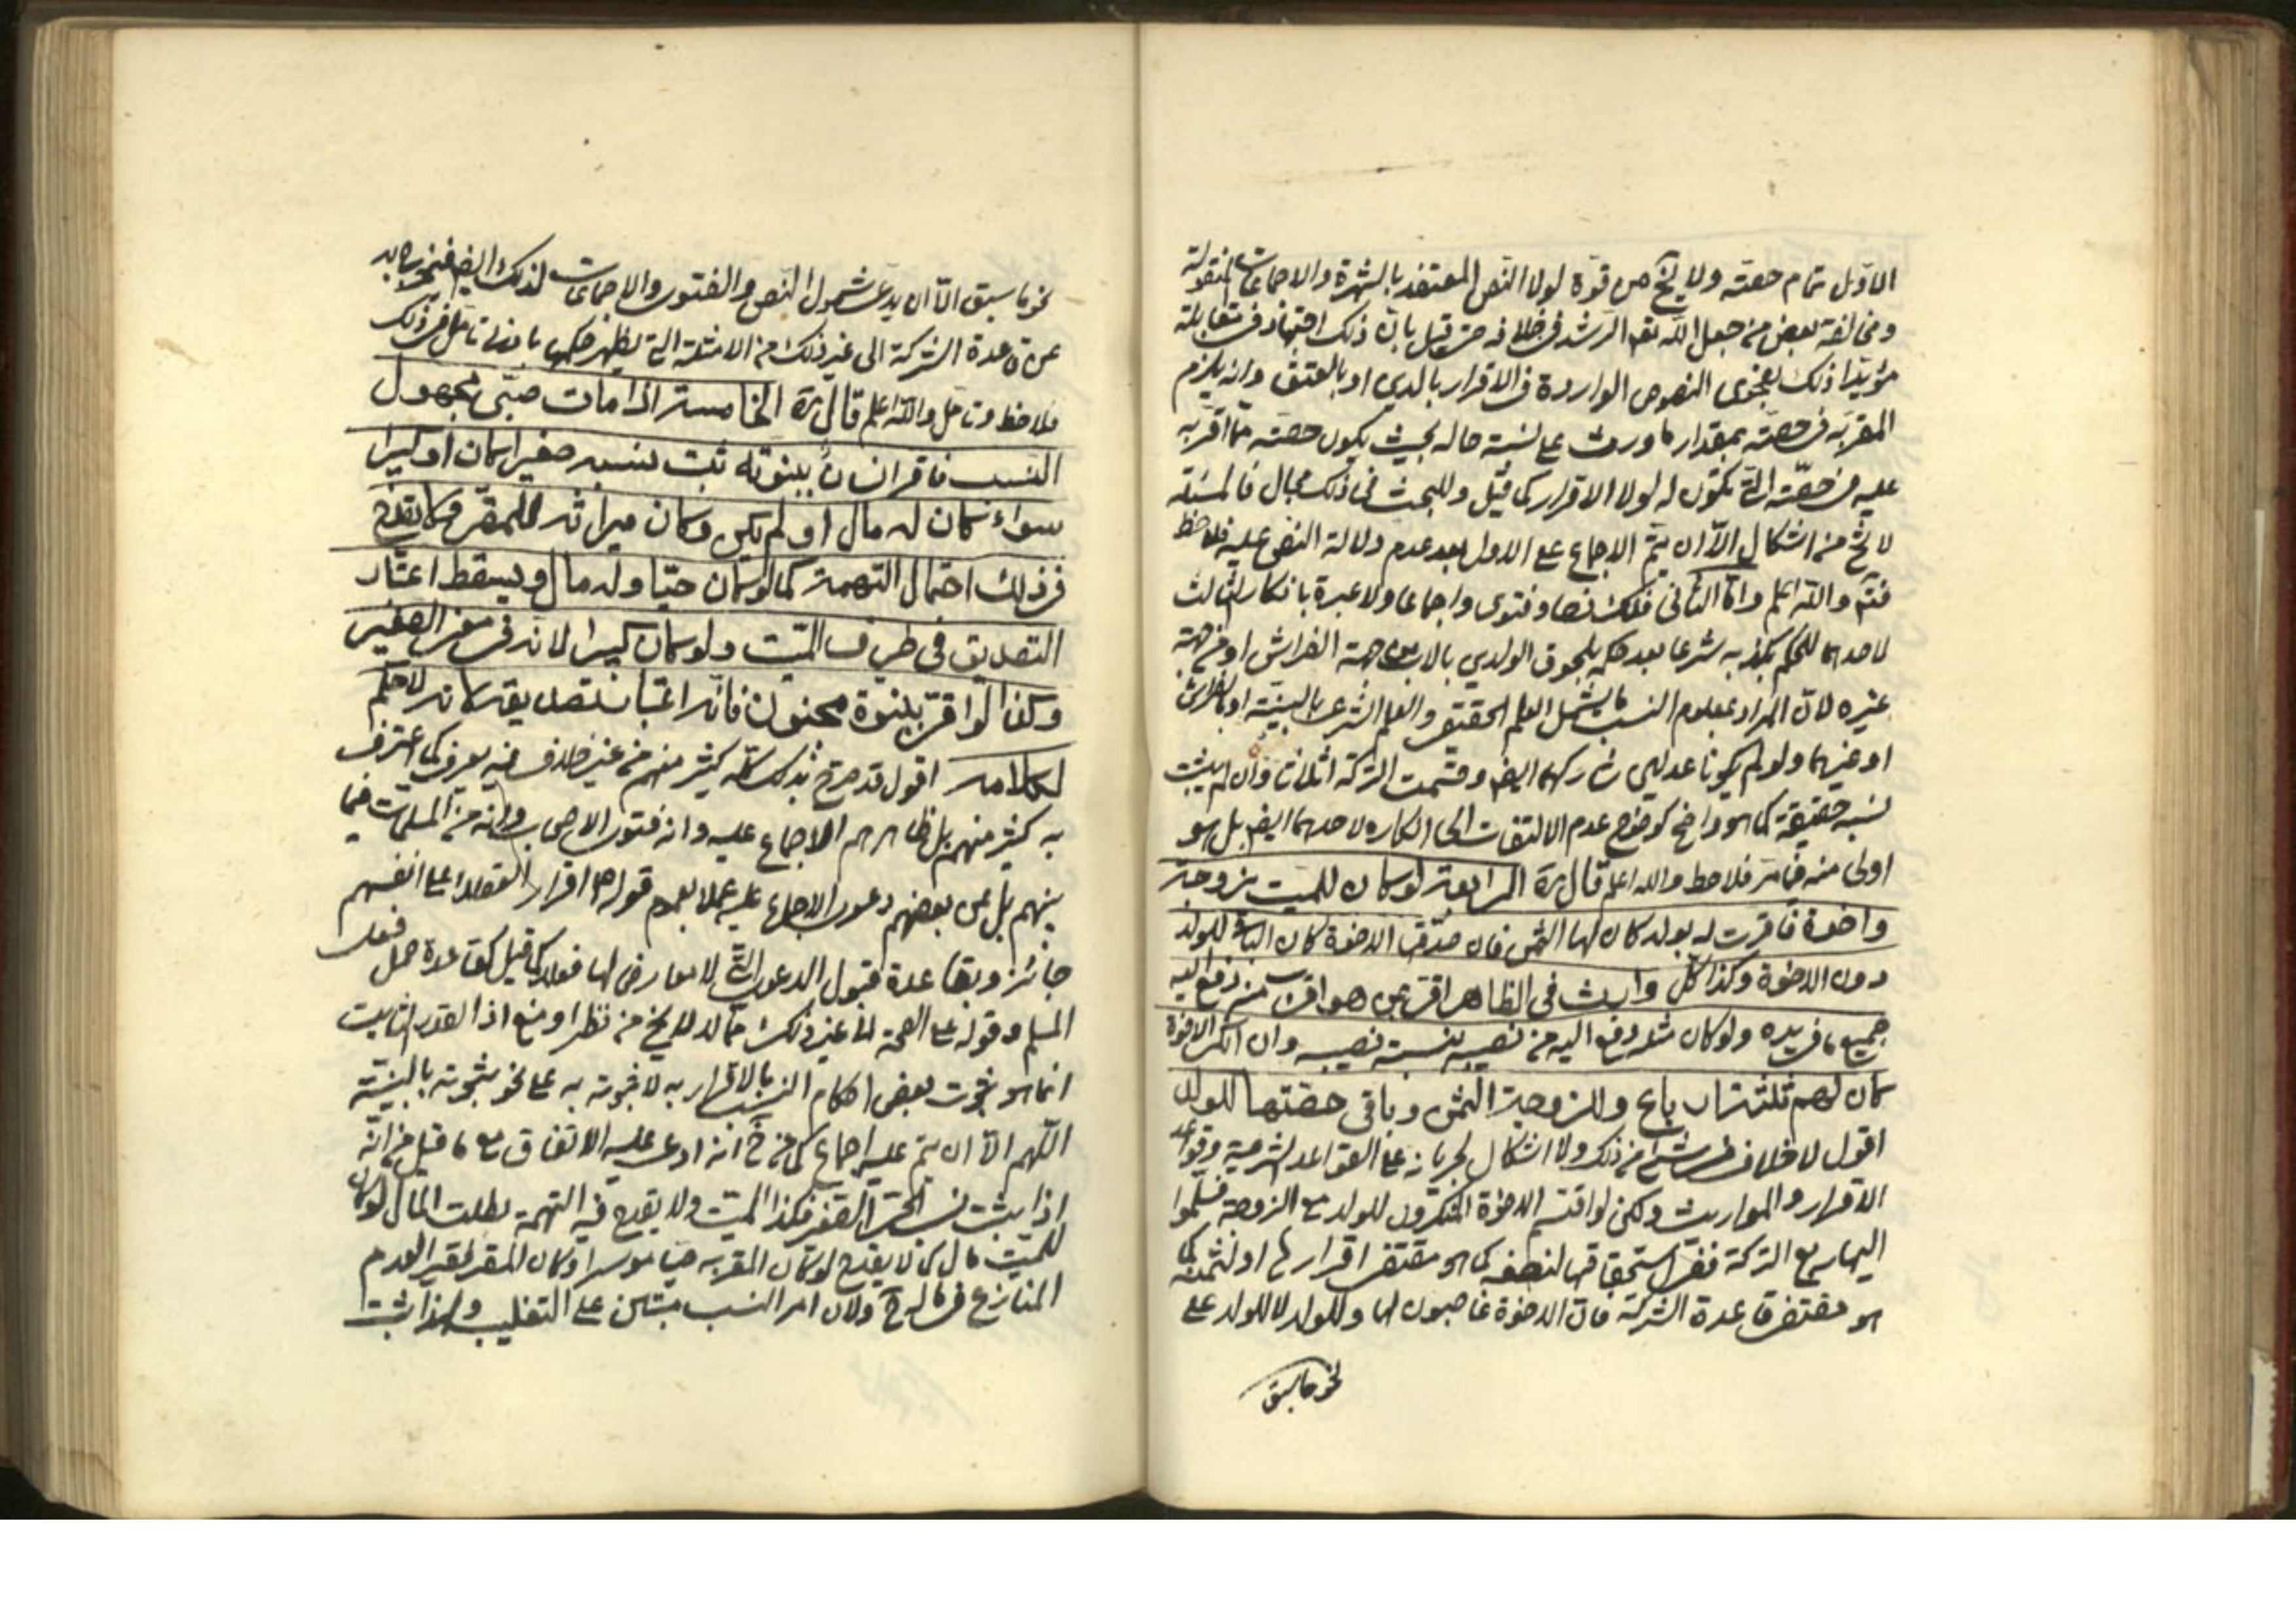 الاول تمام حصته ولا يخ من قوة لولا النص المعتضد بالشهرة والاجماعات المنقولة
ومخالفة بعض من جعل الله تع الرشد في خلافه حتى قيل بان ذلك اجتهاد في مقابلة
مؤيدا ذلك بفحوى النصوص الواردة في الاقرار بالدين او بالعتق وانه يلزم
المقر به في حصته بمقدار ما ورث على نسبة حاله بحيث يكون حصته مما اقر به
عليه من حصته التي تكون له لولا الاقرار كما قيل وللبحث في ذلك مجال فالمسئلة
لا تخ من اشكال الا ان يتم الاجماع على الاول بعد عدم دلالة النص عليه فلاحظ
فتم والله اعلم واما الثاني فلذلك نصا وفتوى واجماعا ولا عبرة بانكار الثالث
لاحدهما للحكم بكذبه شرعا بعد حكمه بلحوق الولدين بالاب من جهة الفراش او من جهة
غيره لان المراد بمعلوم النسب ما يشمل العلم الحقيقي والعلم الشرعي بالبينة او بالفراش
او غيرهما ولو لم يكونا عدلين شاركهما ايض وقسمت التركة اثلاثا وان لم يثبت
نسبه حقيقة كما هو واضح كوضوح عدم الالتفات الى انكاره لاحدهما ايض بل هو
اولى منه فيما مر فلاحظ والله اعلم قال ره الرابعة لو كان للميت زوجة
واخوة فاقرت له بولد كان لها الثمن فان صدقها الاخوة كان الباقي للولد
دون الاخوة وكذا كل وارث في الظاهر اقر بمن هو اقرب منه دفع اليه
جميع ما في يده ولو كان مثله دفع اليه من نصيبه بنسبة نصيبه وان انكر الاخوة
كان لهم ثلثة ارباع وللزوجة الثمن وباقي حصتها للولد
اقول لا خلاف في شيء من ذلك ولا اشكال لجريانه على القواعد الشرعية وقواعد
الاقرار والمواريث ولكن لو اقتسم الاخوة المنكرون للولد مع الزوجة فسلموا
اليها ربع التركة ففي استحقاقها لنصفه كما هو مقتضى اقرارها او لثمنه كما
هو مقتضى قاعدة الشركة فان الاخوة غاصبون لها وللولد لا للولد على
نحو ما سبق
نحو ما سبق الا ان يدعى شمول النص والفتوى والاجماعات لذلك ايض فيخرج به
عن قاعدة الشركة الى غير ذلك من الامثلة التي يظهر حكمها بادنى تامل في ذلك
فلاحظ وتامل والله اعلم قال ره الخامسة اذا مات صبي مجهول
النسب فاقر انسان ببنوته ثبت نسبه صغيرا كان او كبيرا
سواء كان له مال او لم يكن وكان ميراثه للمقر ولا يقدح
في ذلك احتمال التهمة كما لو كان حيا وله مال ويسقط اعتبار
التصديق في طرف الميت ولو كان كبيرا لانه في معنى الصغير
وكذا لو اقر ببنوة مجنون فانه لا اعتبار بتصديقه لانه لا حكم
لكلامه اقول قد صرح بذلك كله كثير منهم من غير خلاف فيه يعرف كما اعترف
به كثير منهم بل ظاهرهم الاجماع عليه وانه فتوى الاصحاب وانه من المسلمات فيما
بينهم بل عن بعضهم دعوى الاجماع عليه عملا بعموم قوله ص اقرار العقلاء على انفسهم
جائز وبقاعدة قبول الدعوى التي لا معارض لها فعلا كما قيل كقاعدة حمل فعل
المسلم وقوله على الصحة الى غير ذلك مما لا يخ من نظر او منع اذ القدر الثابت
انما هو ثبوت بعض احكام النسب بالاقرار به لا ثبوته به على نحو ثبوته بالبينة
اللهم الا ان يتم عليه اجماع كما عن خ انه ادعى عليه الاتفاق مع ما قيل من انه
اذا يثبت نسب الحي الصغير فكذا الميت ولا يقدح فيه التهمة بطلب المال لو كان
للميت مال كما لا يقدح لو كان المقر به حيا موسرا وكان المقر فقيرا لعدم
المنازع في ماله ح ولان امر النسب مبتنى على التغليب ولهذا يثبت